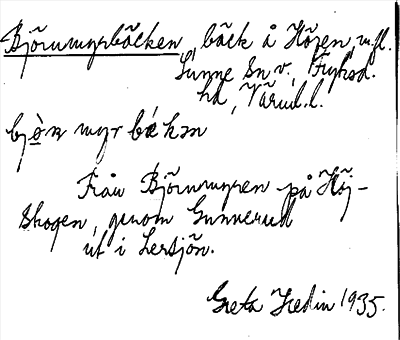 Björnmyrbäcken, bäck å Höjen, m.fl.
Sunne Sn v., Fryksd.
hd, Värml. l.
bjò̱n myr bäkən
Från Björnmyren på Höj-
skogen, genom Gunnerud
ut i Lersjön.
Greta Hedin 1935.